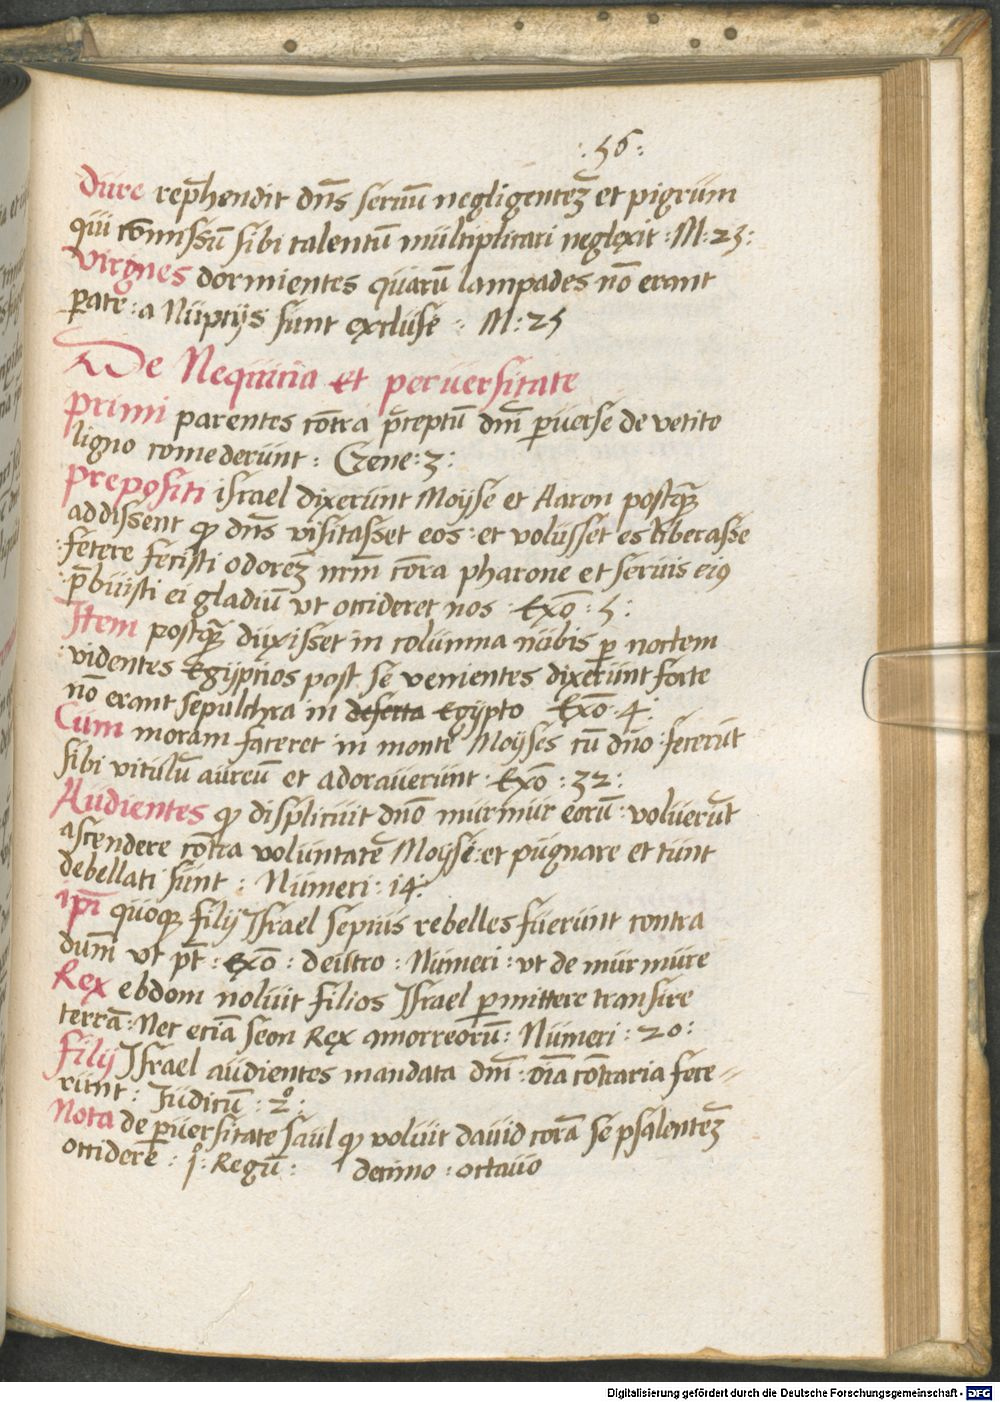 : 56 :
Dure rep̄hendit dn̄s seruū negligentez̄ et pigrum
qui cōmissū sibi talentū multiplicari neglexit : M : 23 :
Virgnes dormientes quarū lampades nō erant
parate : a Nuptijs sunt excluse : M : 25
De Nequitia et peruersitate
Primi parentes cōtra p̄ceptū dn̄i peruerse de vetito
ligno comederunt : Gene : 3 :
Prepositi israel dixerunt Moÿse et Aaron postq̄
addissent qd dn̄s visitasset eos : et voluisset es liberasse
fetere fecisti odorez̄ nr̄m cōra pharone et seruis eiꝰ
p̄buisti ei gladiū vt occideret nos Exō : 5 :
Item postq̄ duxisset in columna nubis per noctem
videntes Egÿptios post se venientes dixerunt forte
nō erant sepulchra in deserta Egÿpto Exō 4 :
Cum moram faceret in monte Moÿses cū dn̄o : fecerūt
sibi vitulū aureū et adorauerunt Exō : 32 :
Audientes qd displicuit dn̄o murmur eorū : voluerūt
ascendere cōtra voluntatē Moÿse : et pugnare et tunt
debellati sunt : Numeri : 14 :
ip̄i quoque filij Israel sepius rebelles fuerunt contra
dum̄ vt p̄t : Exō : deutro : Numeri : vt de murmure
Rex ebdom noluit filios Israel permittere transire
terrā : Nec etiā seon Rex amorreorū : Numeri : 20 :
Filij Israel audientes mandata dn̄i : oīa cōtraria fece=
runt : Judicū : 2º :
Nota de peruersitate saul qd voluit dauid corā se psalentez̄
occidere : 1º : Regū : decimo : octauo
Digitalisierung gefördert durch die Deutsche Forschungsgemeinschaft - DFG